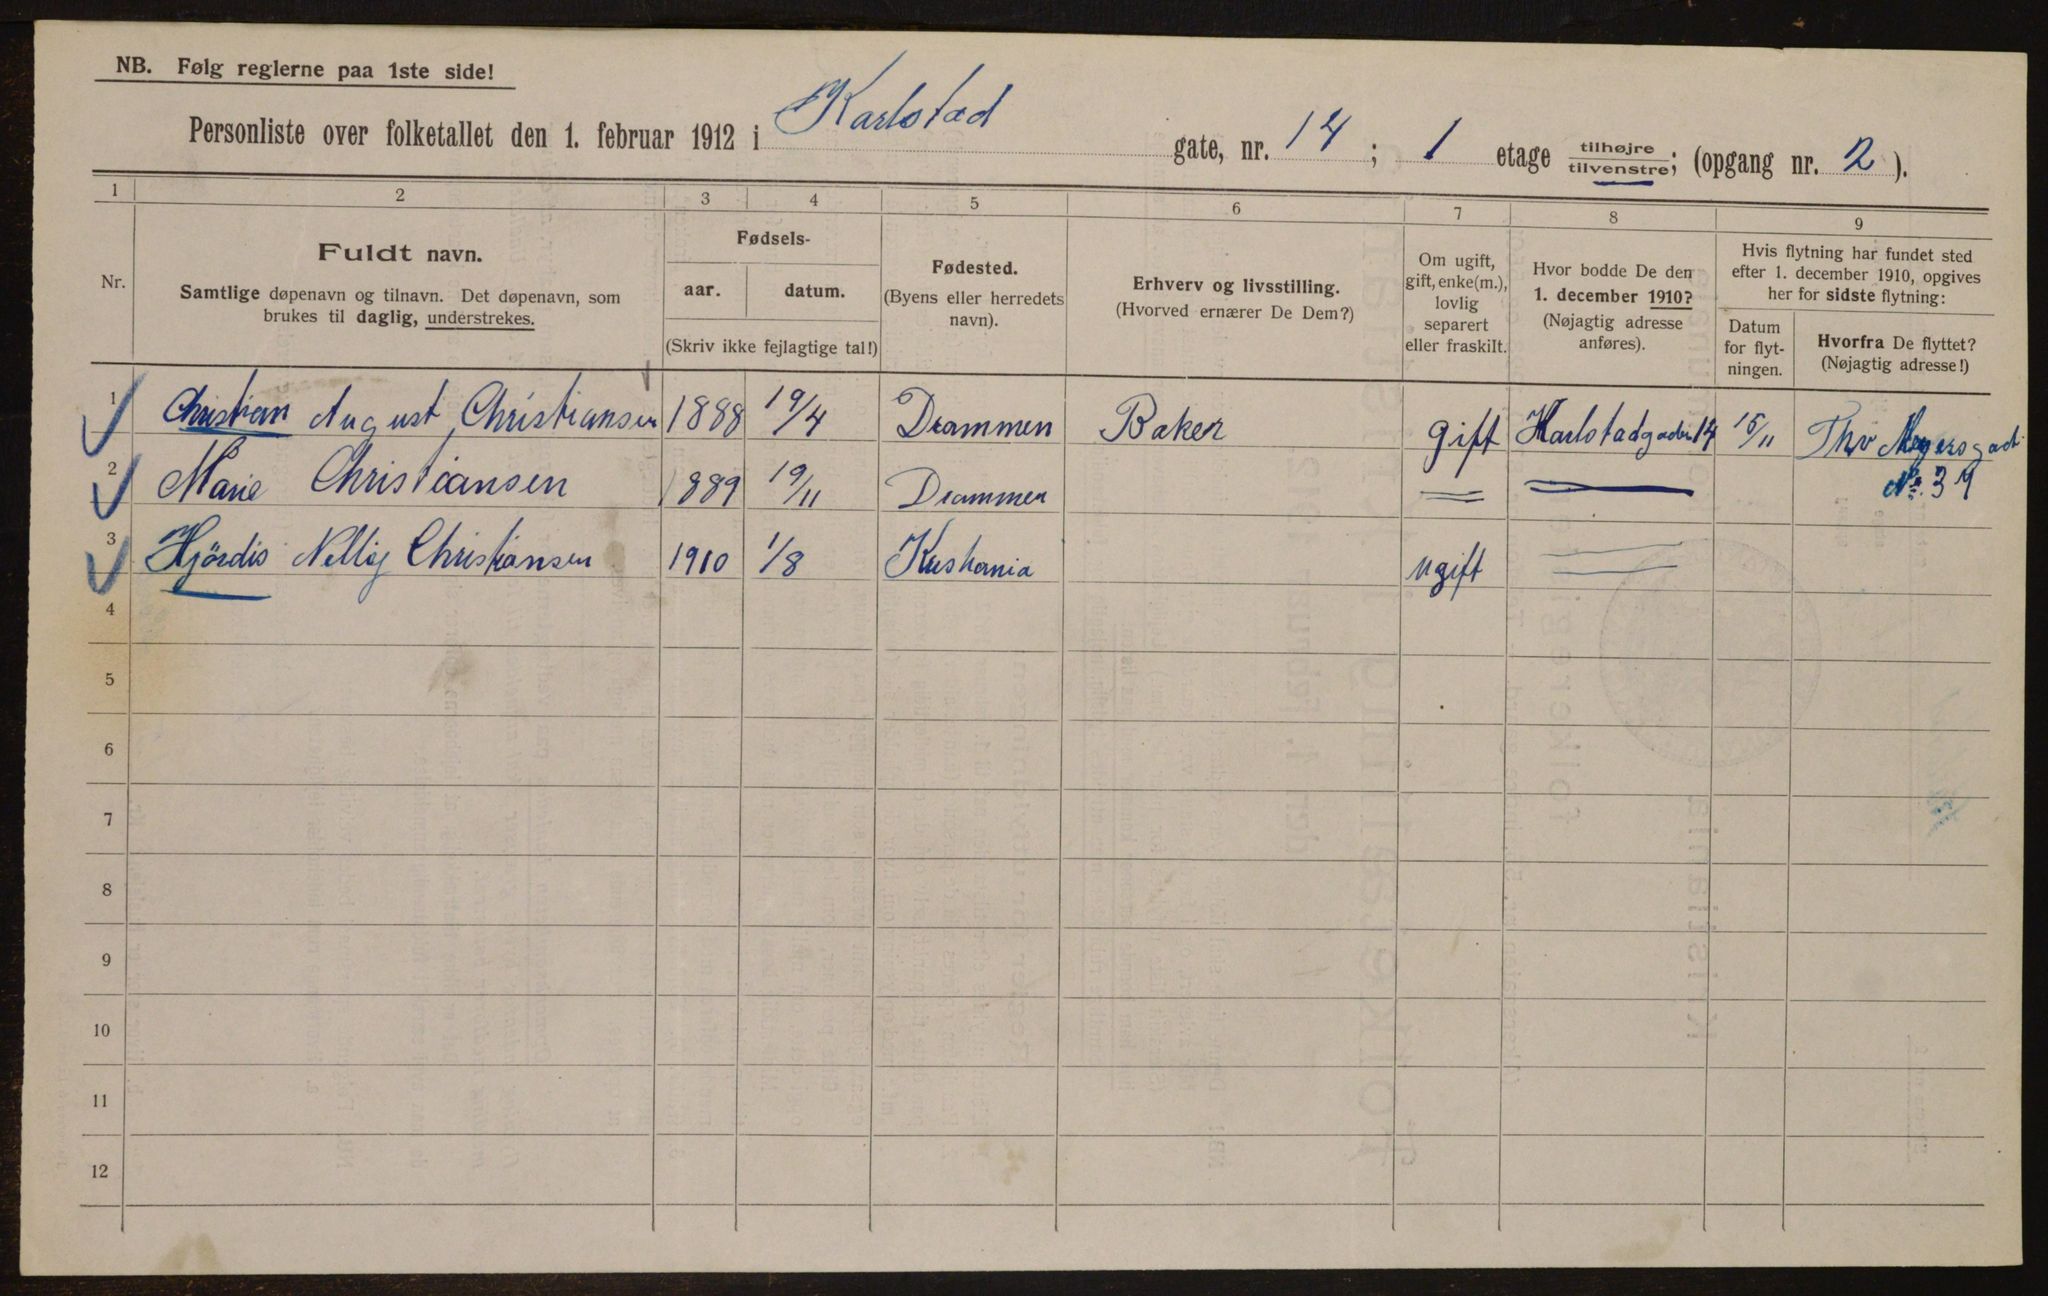 NB. Følg reglerne paa 1ste side!
Personliste over folketallet den 1. februar 1912 i Karlstad gate, nr. 14; 1 etage tilhøjre tilvenstre; (opgang nr. 2).
1 2 3 4 5 6 7 8 9
Nr.
Fuldt navn.
Samtlige døpenavn og tilnavn. Det døpenavn, som
brukes til daglig, understrekes.
Fødsels-
aar. datum.
(Skriv ikke fejlagtige tal!)
Fødested.
(Byens eller herredets
navn).
Erhverv og livsstilling.
(Hvorved ernærer De Dem?)
Om ugift,
gift, enke(m.),
lovlig
separert
eller fraskilt.
Hvor bodde De den
1. december 1910?
(Nøjagtig adresse
anføres).
Hvis flytning har fundet sted
efter 1. december 1910, opgives
her for sidste flytning:
Datum
for flyt-
ningen.
Hvorfra De flyttet?
(Nøjagtig adresse!)
1 Christian August Christiansen 1888 19/4 Drammen Baker gift Karlstadgaden 14 15/11 Thv Meyersgad
2 Marie Christiansen 1889 19/11 Drammen № 39
3 Hjördis Nelly Christiansen 1910 1/8 Kristiania ugift
4
5
6
7
8
9
10
11
12